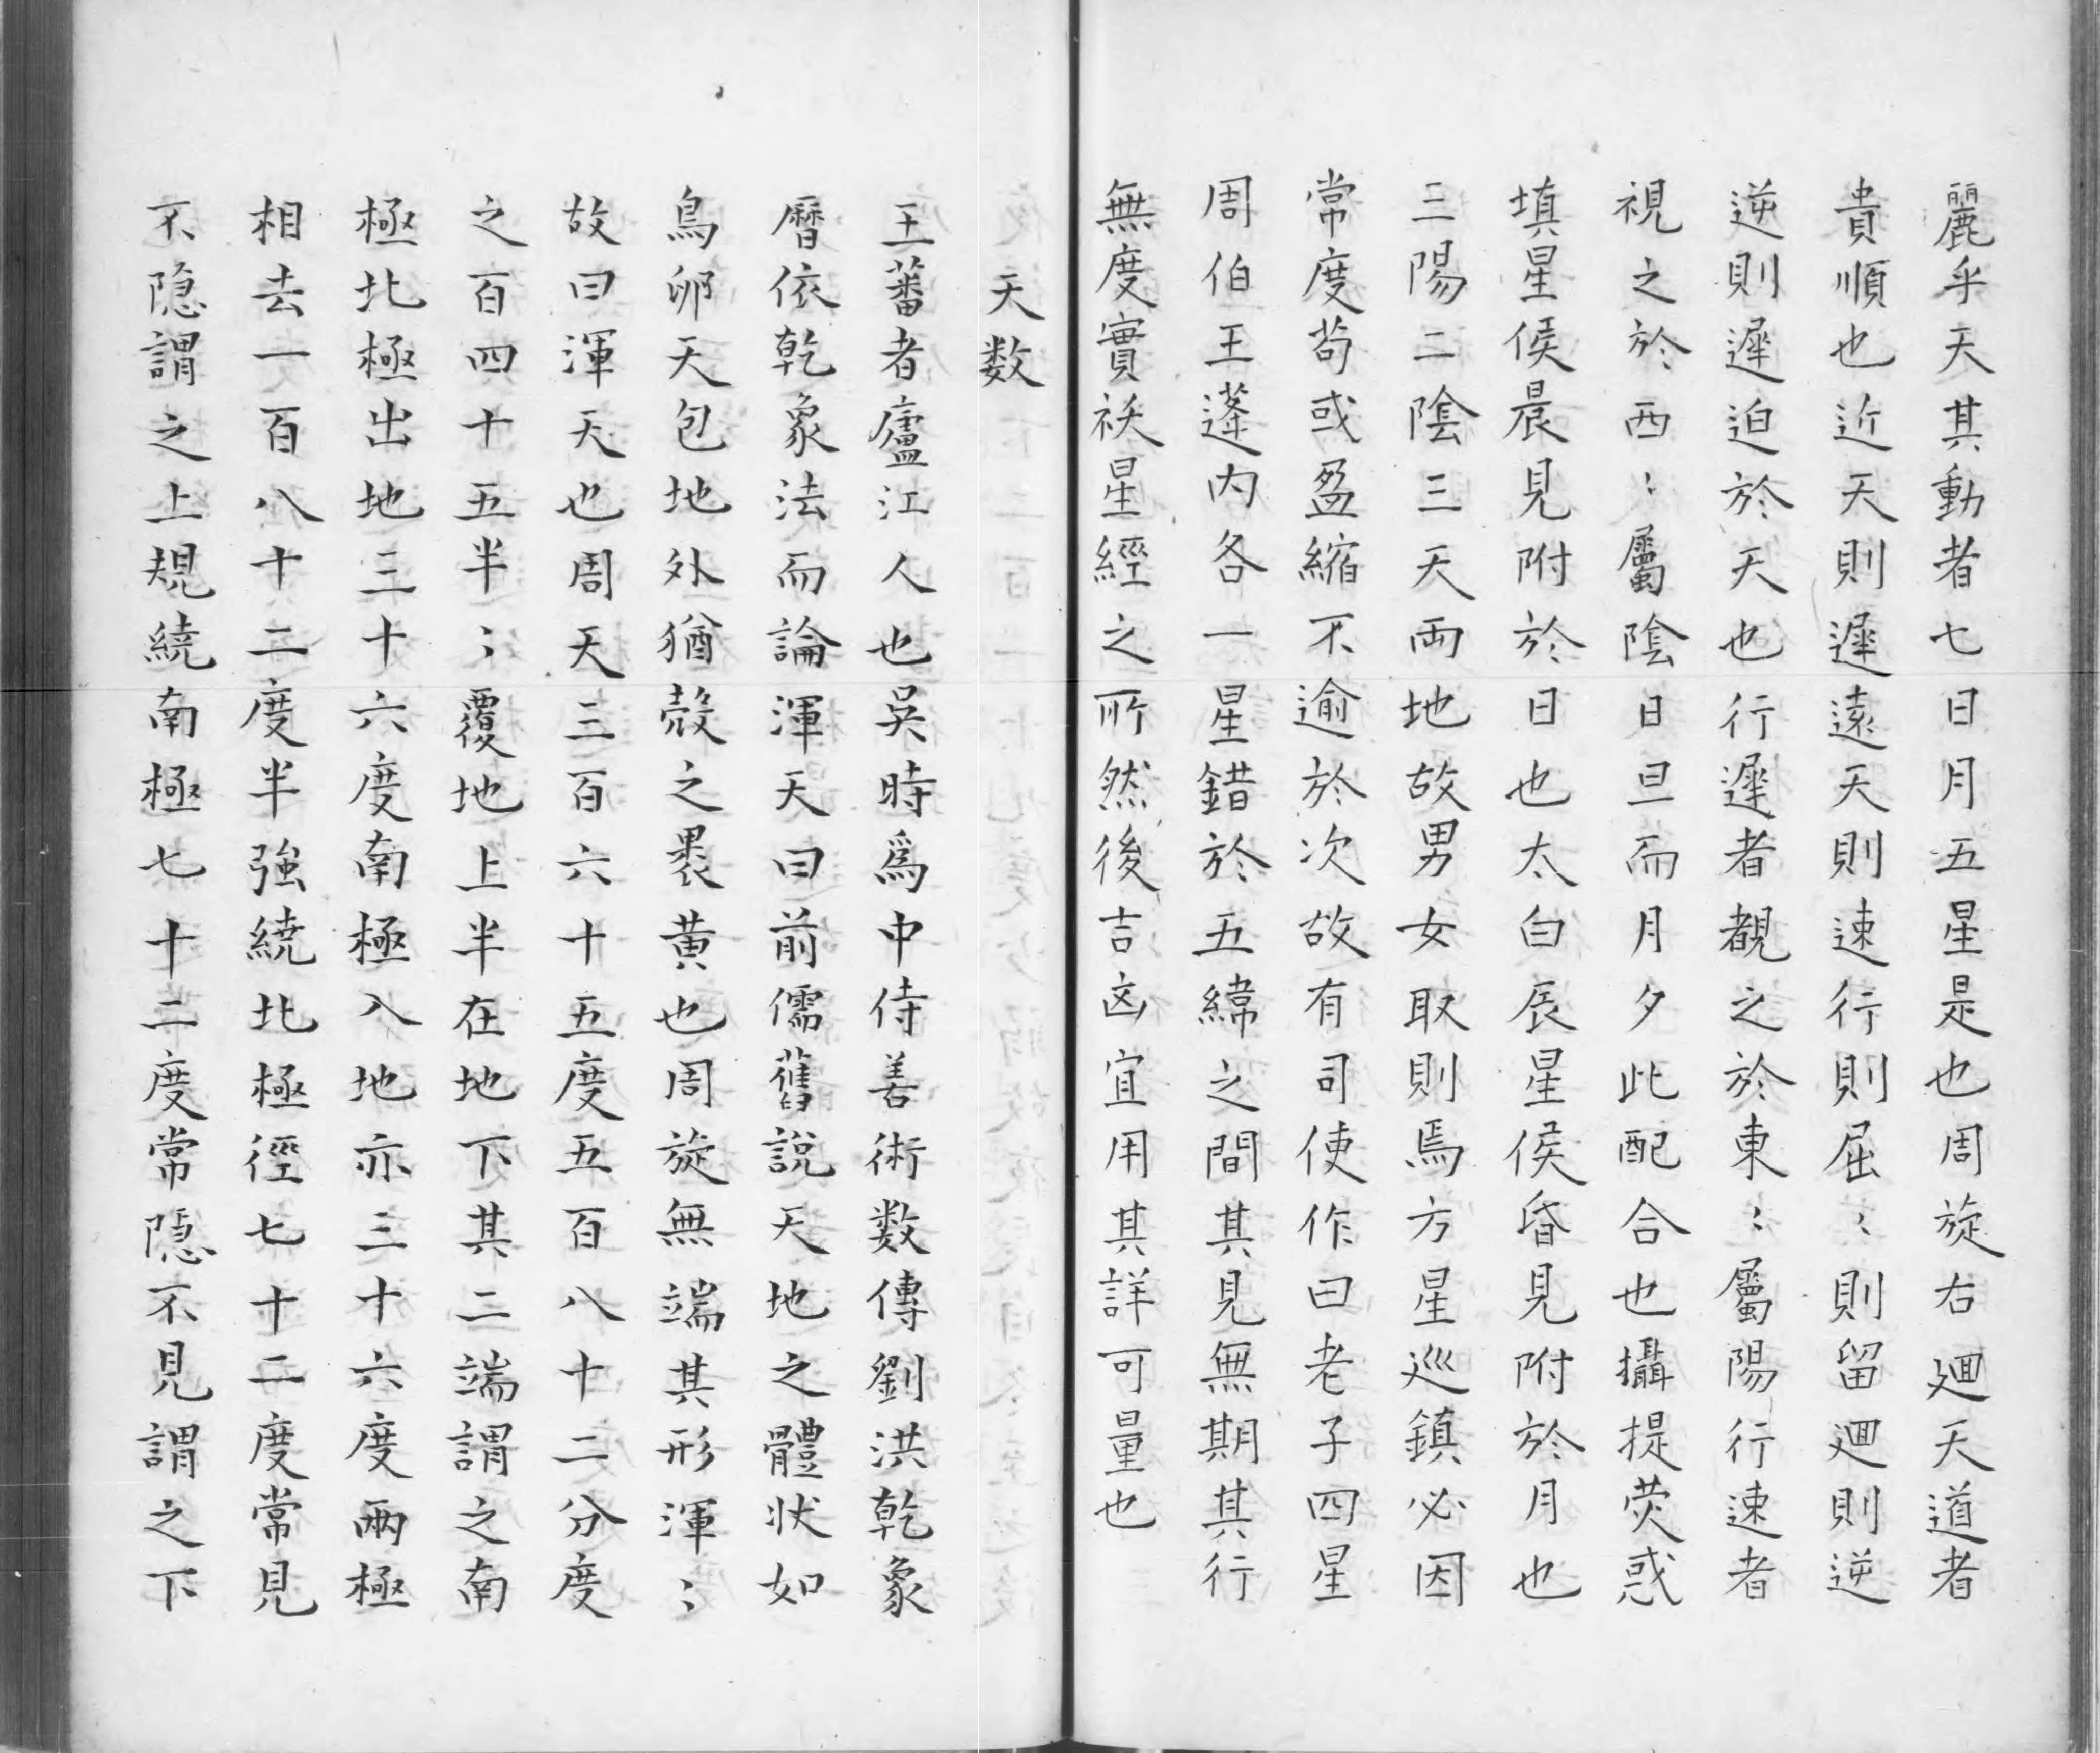 麗乎天其動者七日月五星是也周旋右廻天道者
貴順也近天則遲遠天則速行則屈〻則留廻則逆
逆則遲迫於天也行遲者覩之於東〻屬陽行速者
視之於西〻屬陰日旦而月夕此配合也攝提熒惑
填星侯晨見附於日也太白辰星侯昏見附於月也
三陽二陰三天兩地故男女取則焉方星巡鎮必因
常度苟或盈縮不逾於次故有司使作曰老子四星
周伯王蓬內各一星錯於五緯之間其見無期其行
無度實祅星經之所然後吉凶宜用其詳可量也
天数
王蕃者廬江人也吳時爲中侍善術数傳劉洪乾象
曆依乾象法而論渾天曰前儒舊說天地之體状如
鳥卵天包地外猶殼之裹黃也周旋無端其形渾〻
故曰渾天也周天三百六十五度五百八十二分度
之百四十五半〻覆地上半在地下其二端謂之南
極北極出地三十六度南極入地亦三十六度兩極
相去一百八十二度半強繞北極徑七十二度常見
不隱謂之上規繞南極七十二度常隱不見謂之下